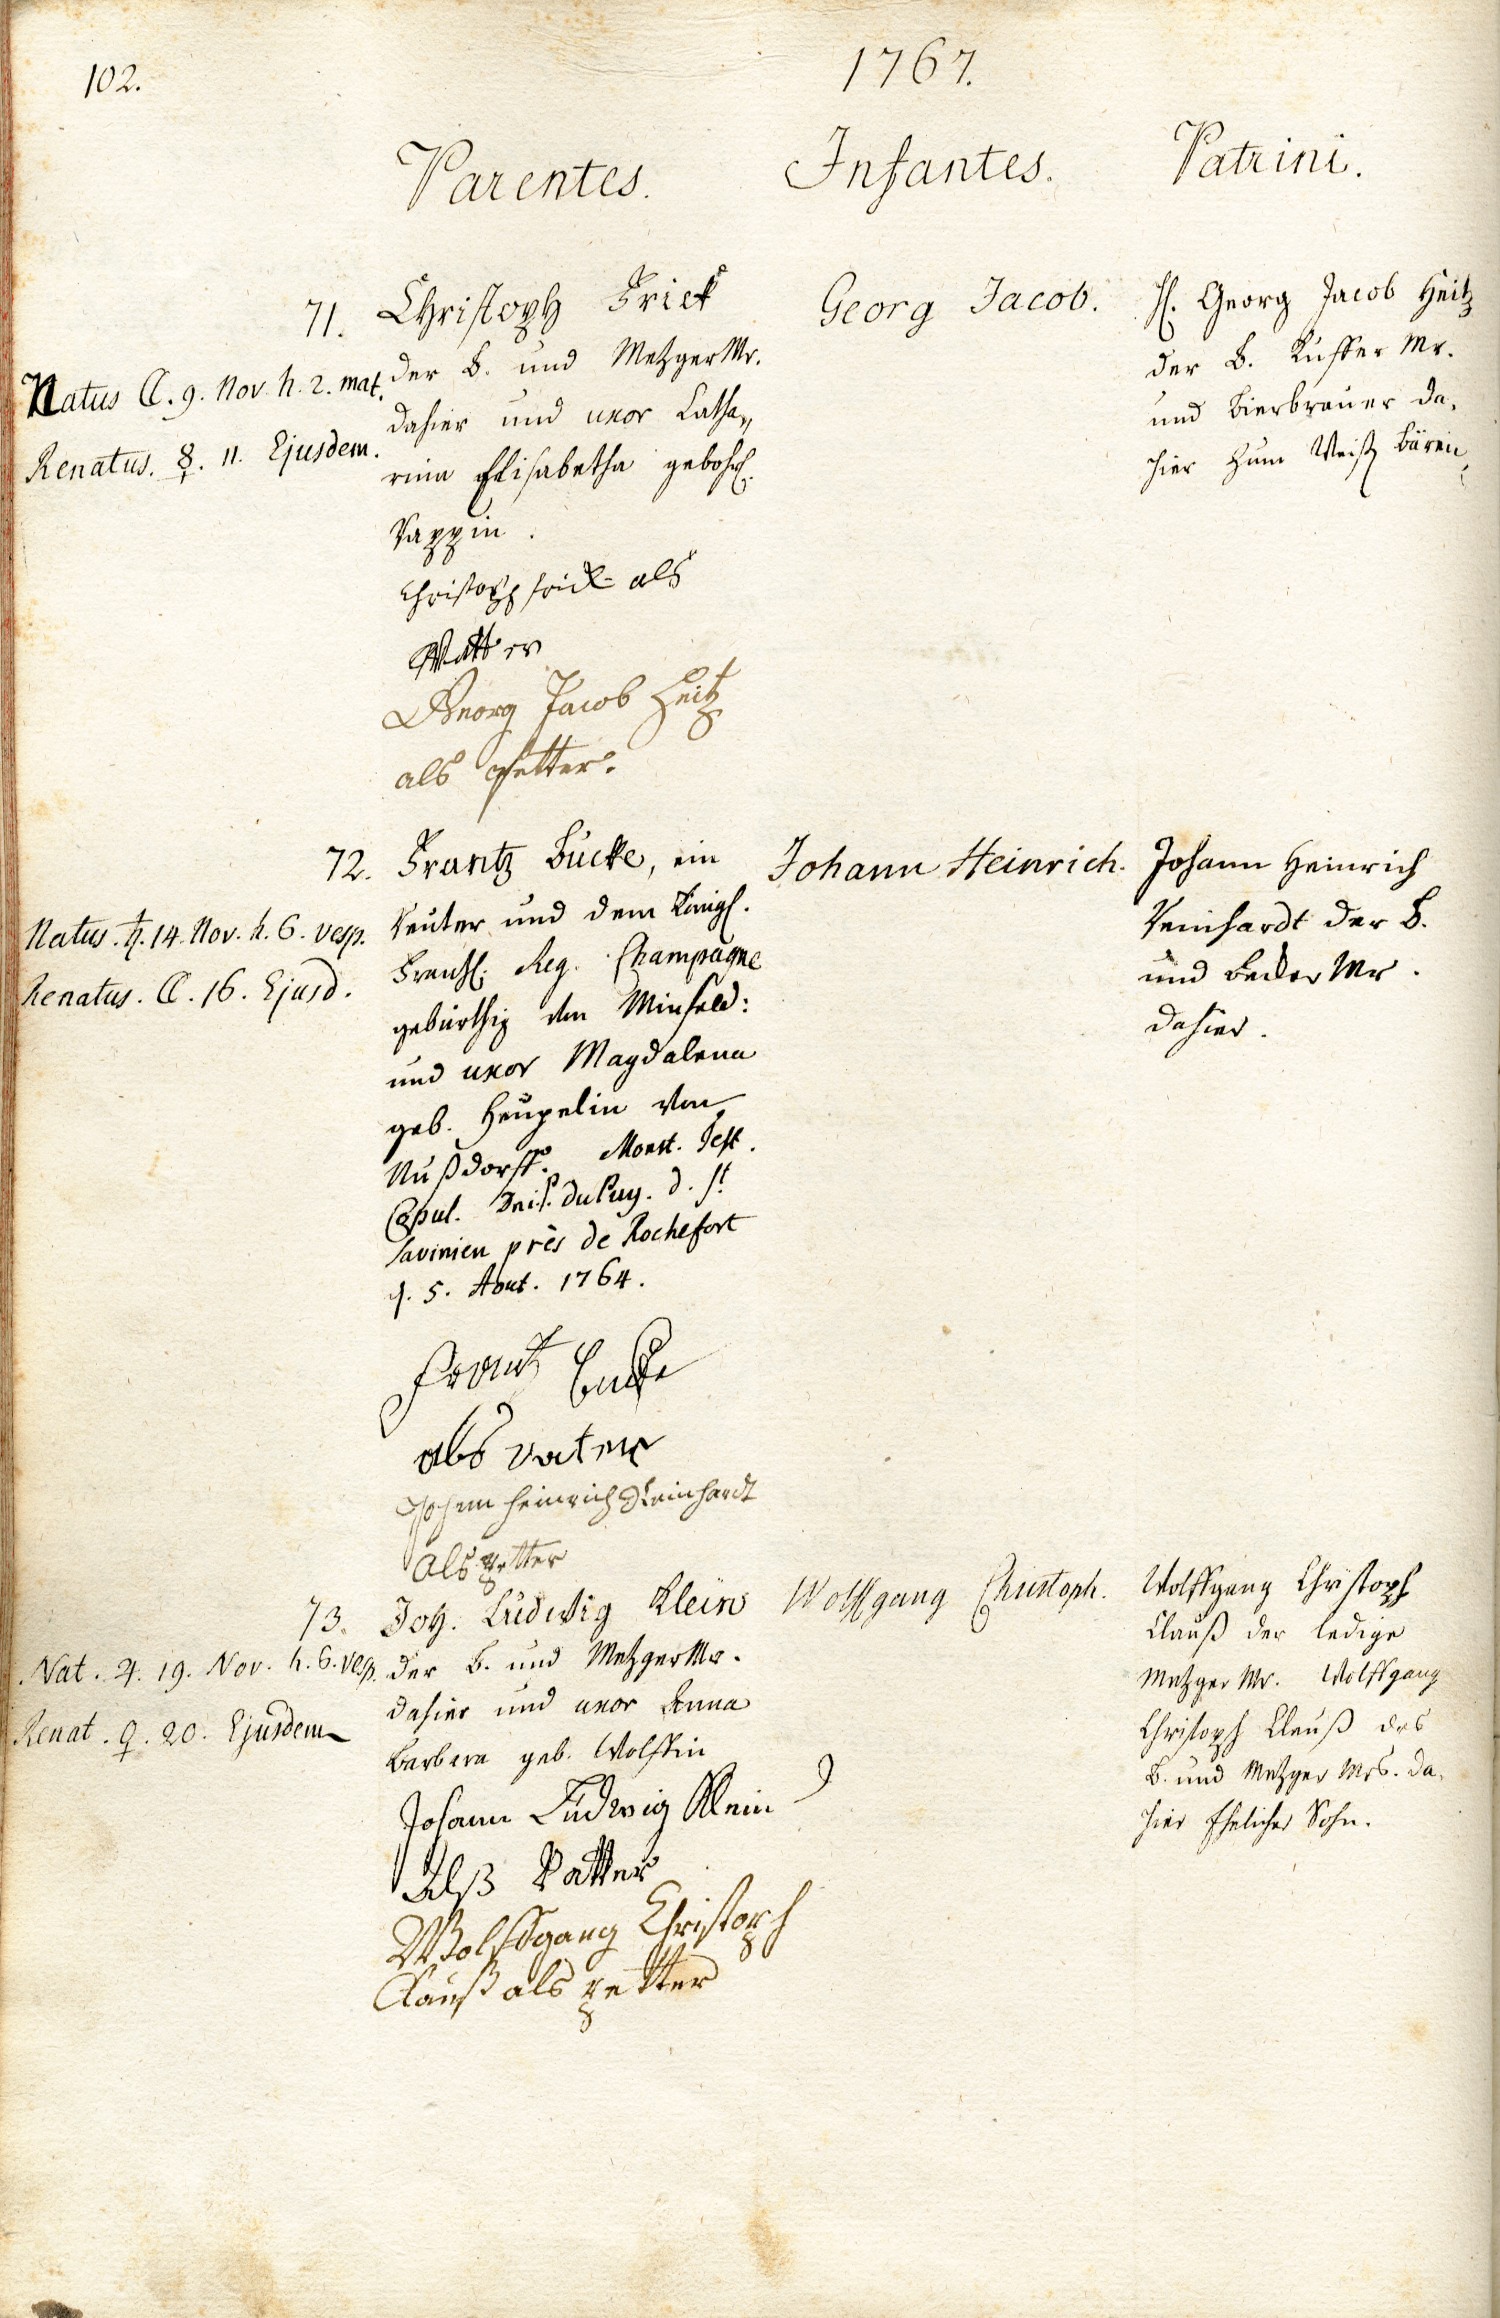 102.
1767.
Parentes.
Infantes.
Patrini.
71.
Natus ☾. 9. Nov. h. 2. mat.
Renatus. ☿. 11. Ejusdem.
Christoph Frick
der B. und Metzger Mr.
dahier und uxor Catha,
rina Elisabetha gebohr.
Rappin.
Christoph frick als
Vatter
Georg Jacob Heitz
als Petter.
Georg Jacob.
H. Georg Jacob Heitz
der B. Kuffer Mr.
und Bierbrauer da,
hier zum Weiß Bären,
72.
Natus. ♄. 14. Nov. h. 6. vesp.
Renatus. ☾. 16. Ejusd.
Frantz Bucke, ein
Reuter und dem Königl.
Frantz. Reg. Champagne
gebürthig von Minfeld:
und uxor Magdalena
geb. Heupelin von
Nußdorff. Monst. Test.
Copul. du Puy. d. St.
Savinien près de Rochefort
d. 5. Aout. 1764.
Frantz Bucke
als vater
Johann Heinrich Reinhardt
als petter
Johann Heinrich.
Johann Heinrich
Reinhardt der B.
und Becker Mr.
dahier.
73.
Nat. ♃. 19. Nov. h. 6. vesp.
Renat. ♀. 20. Ejusdem
Joh. Ludwig Klein
der B. und Metzger Mr.
dahier und uxor Anna
Barbara geb. Wolffin
Johann Ludwig Klein
Alß Vatter
Wolffgang Christoph
Clauß als petter
Wolffgang Christoph.
Wolffgang Christoph
Clauß der ledige
Metzger Mr. Wolffgang
Christoph Clauß des
B. und Metzger Mrs. da,
hier Ehelicher Sohn.